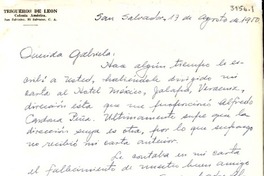 TRIGUEROS DE LEON
Colonia América.
San Salvador, El Salvador, C. A.
San Salvador, 13 de Agosto de 1950.
Querida Gabriela:
Hace algún tiempo le es-
cribí a usted, habiéndole dirigido mi
carta al Hotel México, Jalapa, Veracruz,
dirección esta que me proporcionó Alfredo
Cardona Peña. Ultimamente supe que la
dirección suya es otra, por lo que supongo
no recibió mi carta anterior.
Le contaba en mi carta
el fallecimiento de nuestro buen amigo